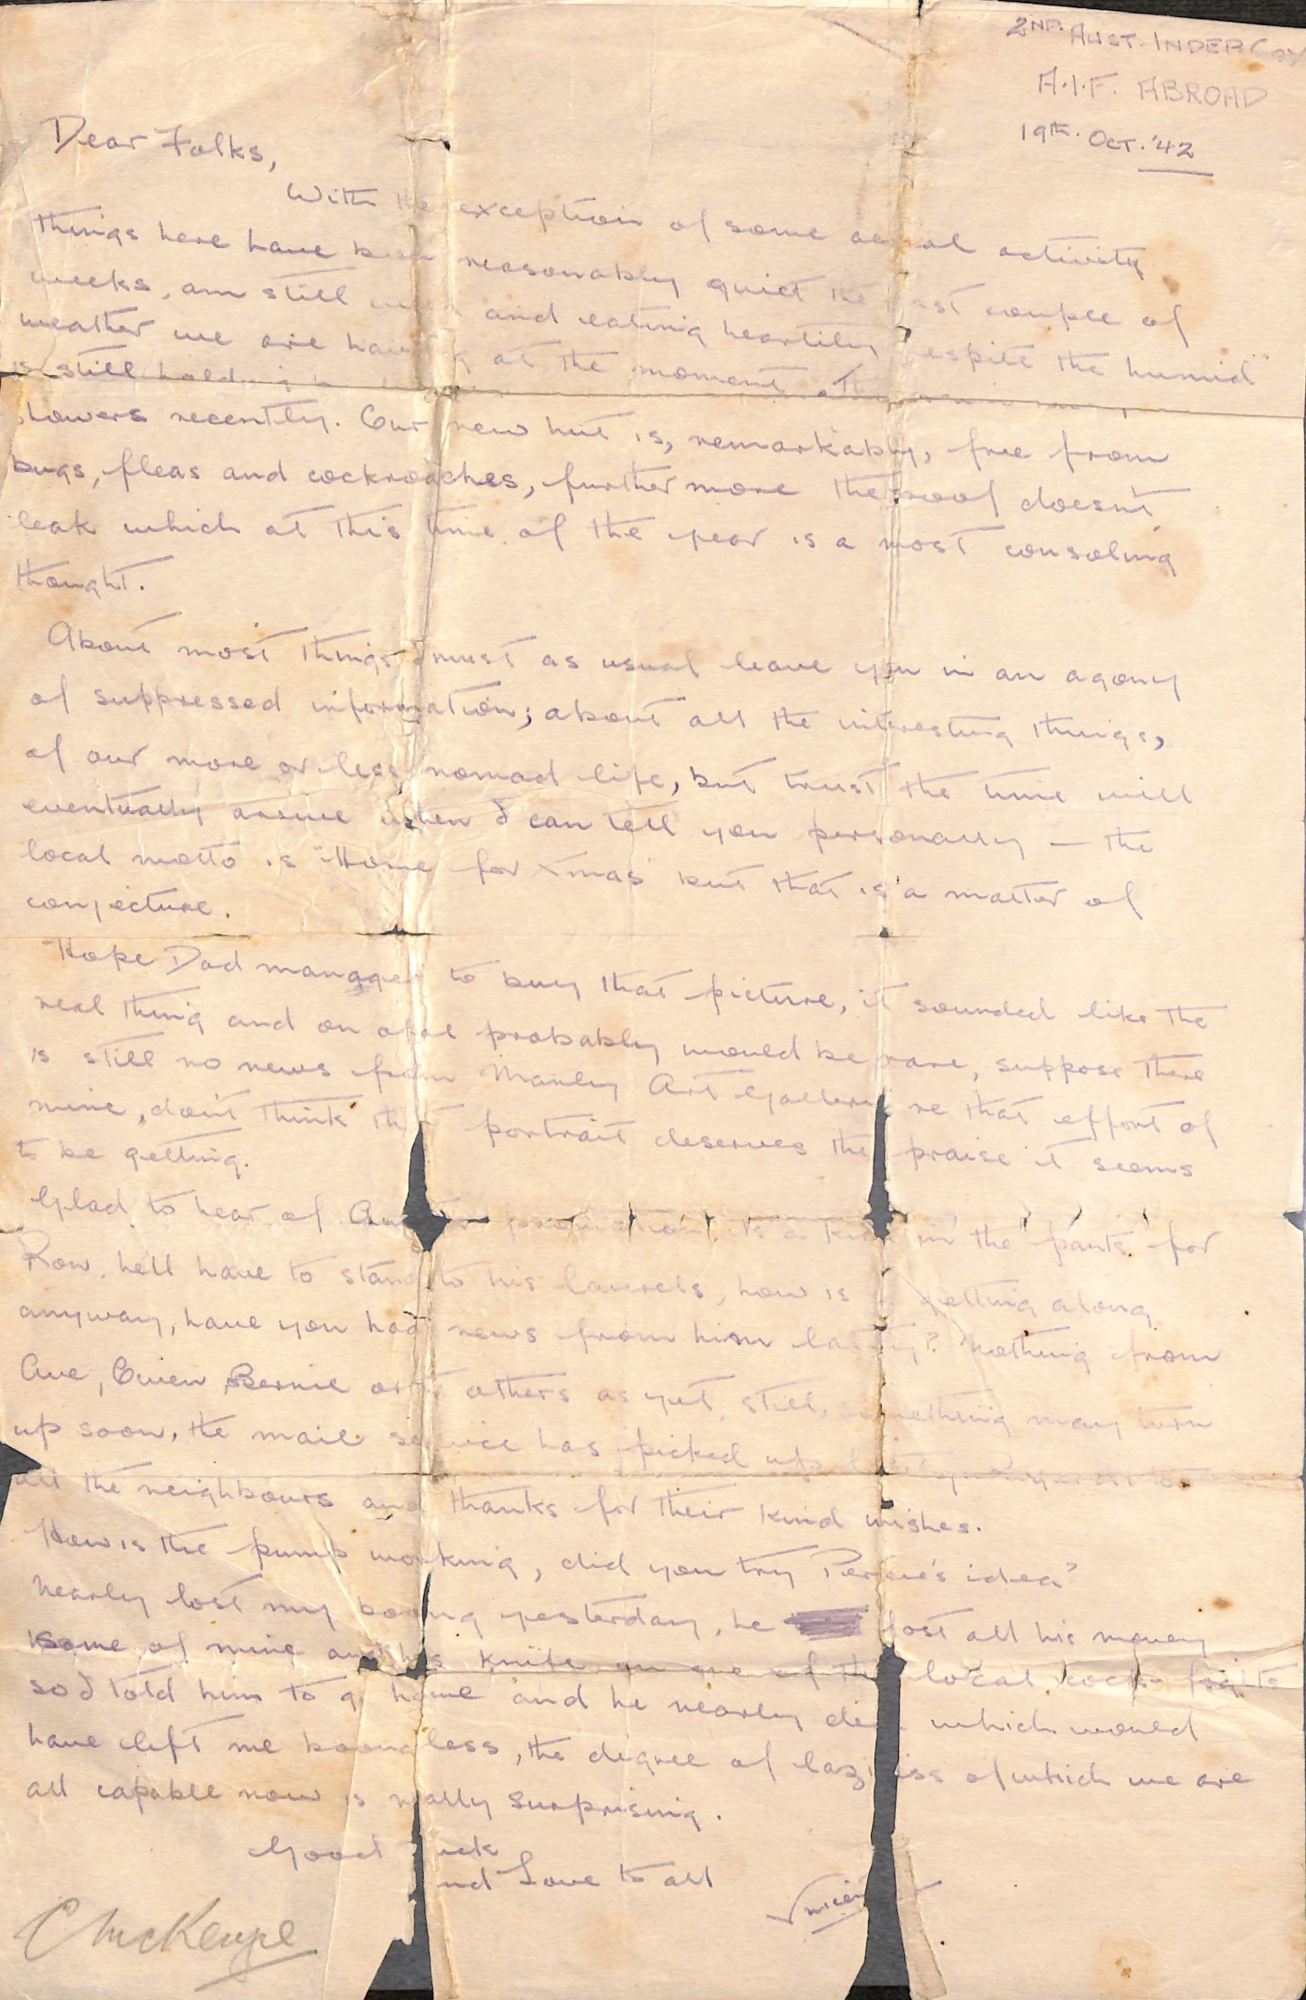 2ND. AUST. INDEP. Coy
A.I.F. ABROAD
19th. OCT. '42
Dear Folks,
With the exception of some aerial activity
things here have been reasonably quiet the last couple of
weeks, am still well and eating heartily despite the humid
weather we are having at the moment,
is still holding
showers recently. Our new hut is, remarkably, free from
bugs, fleas and cockroaches, further more the roof doesn't
leak which at this time of the year is a most consoling
thought.
About most things I must as usual leave you in an agony
of suppressed information; about all the interesting things,
of our more or less nomad life, but trust the time will
eventually arrive when I can tell you personally — the
local motto is "Home for Xmas" but that is a matter of
conjecture.
Hope Dad managed to buy that picture, it sounded like the
real thing and on opal probably would be rare, suppose there
is still no news from Manly Art Gallery re that effort of
mine, don't think that portrait deserves the praise it seems
to be getting.
Glad to hear of promotion, it's a kick in the pants for
Row, he'll have to stand to his laurels, how is getting along
anyway, have you had news from him lately? Nothing from
Ave, Owen, Bernie or the others as yet, still, something may turn
up soon, the mail service has picked up lately. Regards to
all the neighbours and thanks for their kind wishes.
How is the pump working, did you try idea?
Nearly lost my boong yesterday, he lost all his money
some of mine and his knife on one of the local cock-fights
so I told him to go home and he nearly died which would
have left me boongless, the degree of laziness of which we are
all capable now is really surprising.
Good luck
and Love to all
C McKenzie